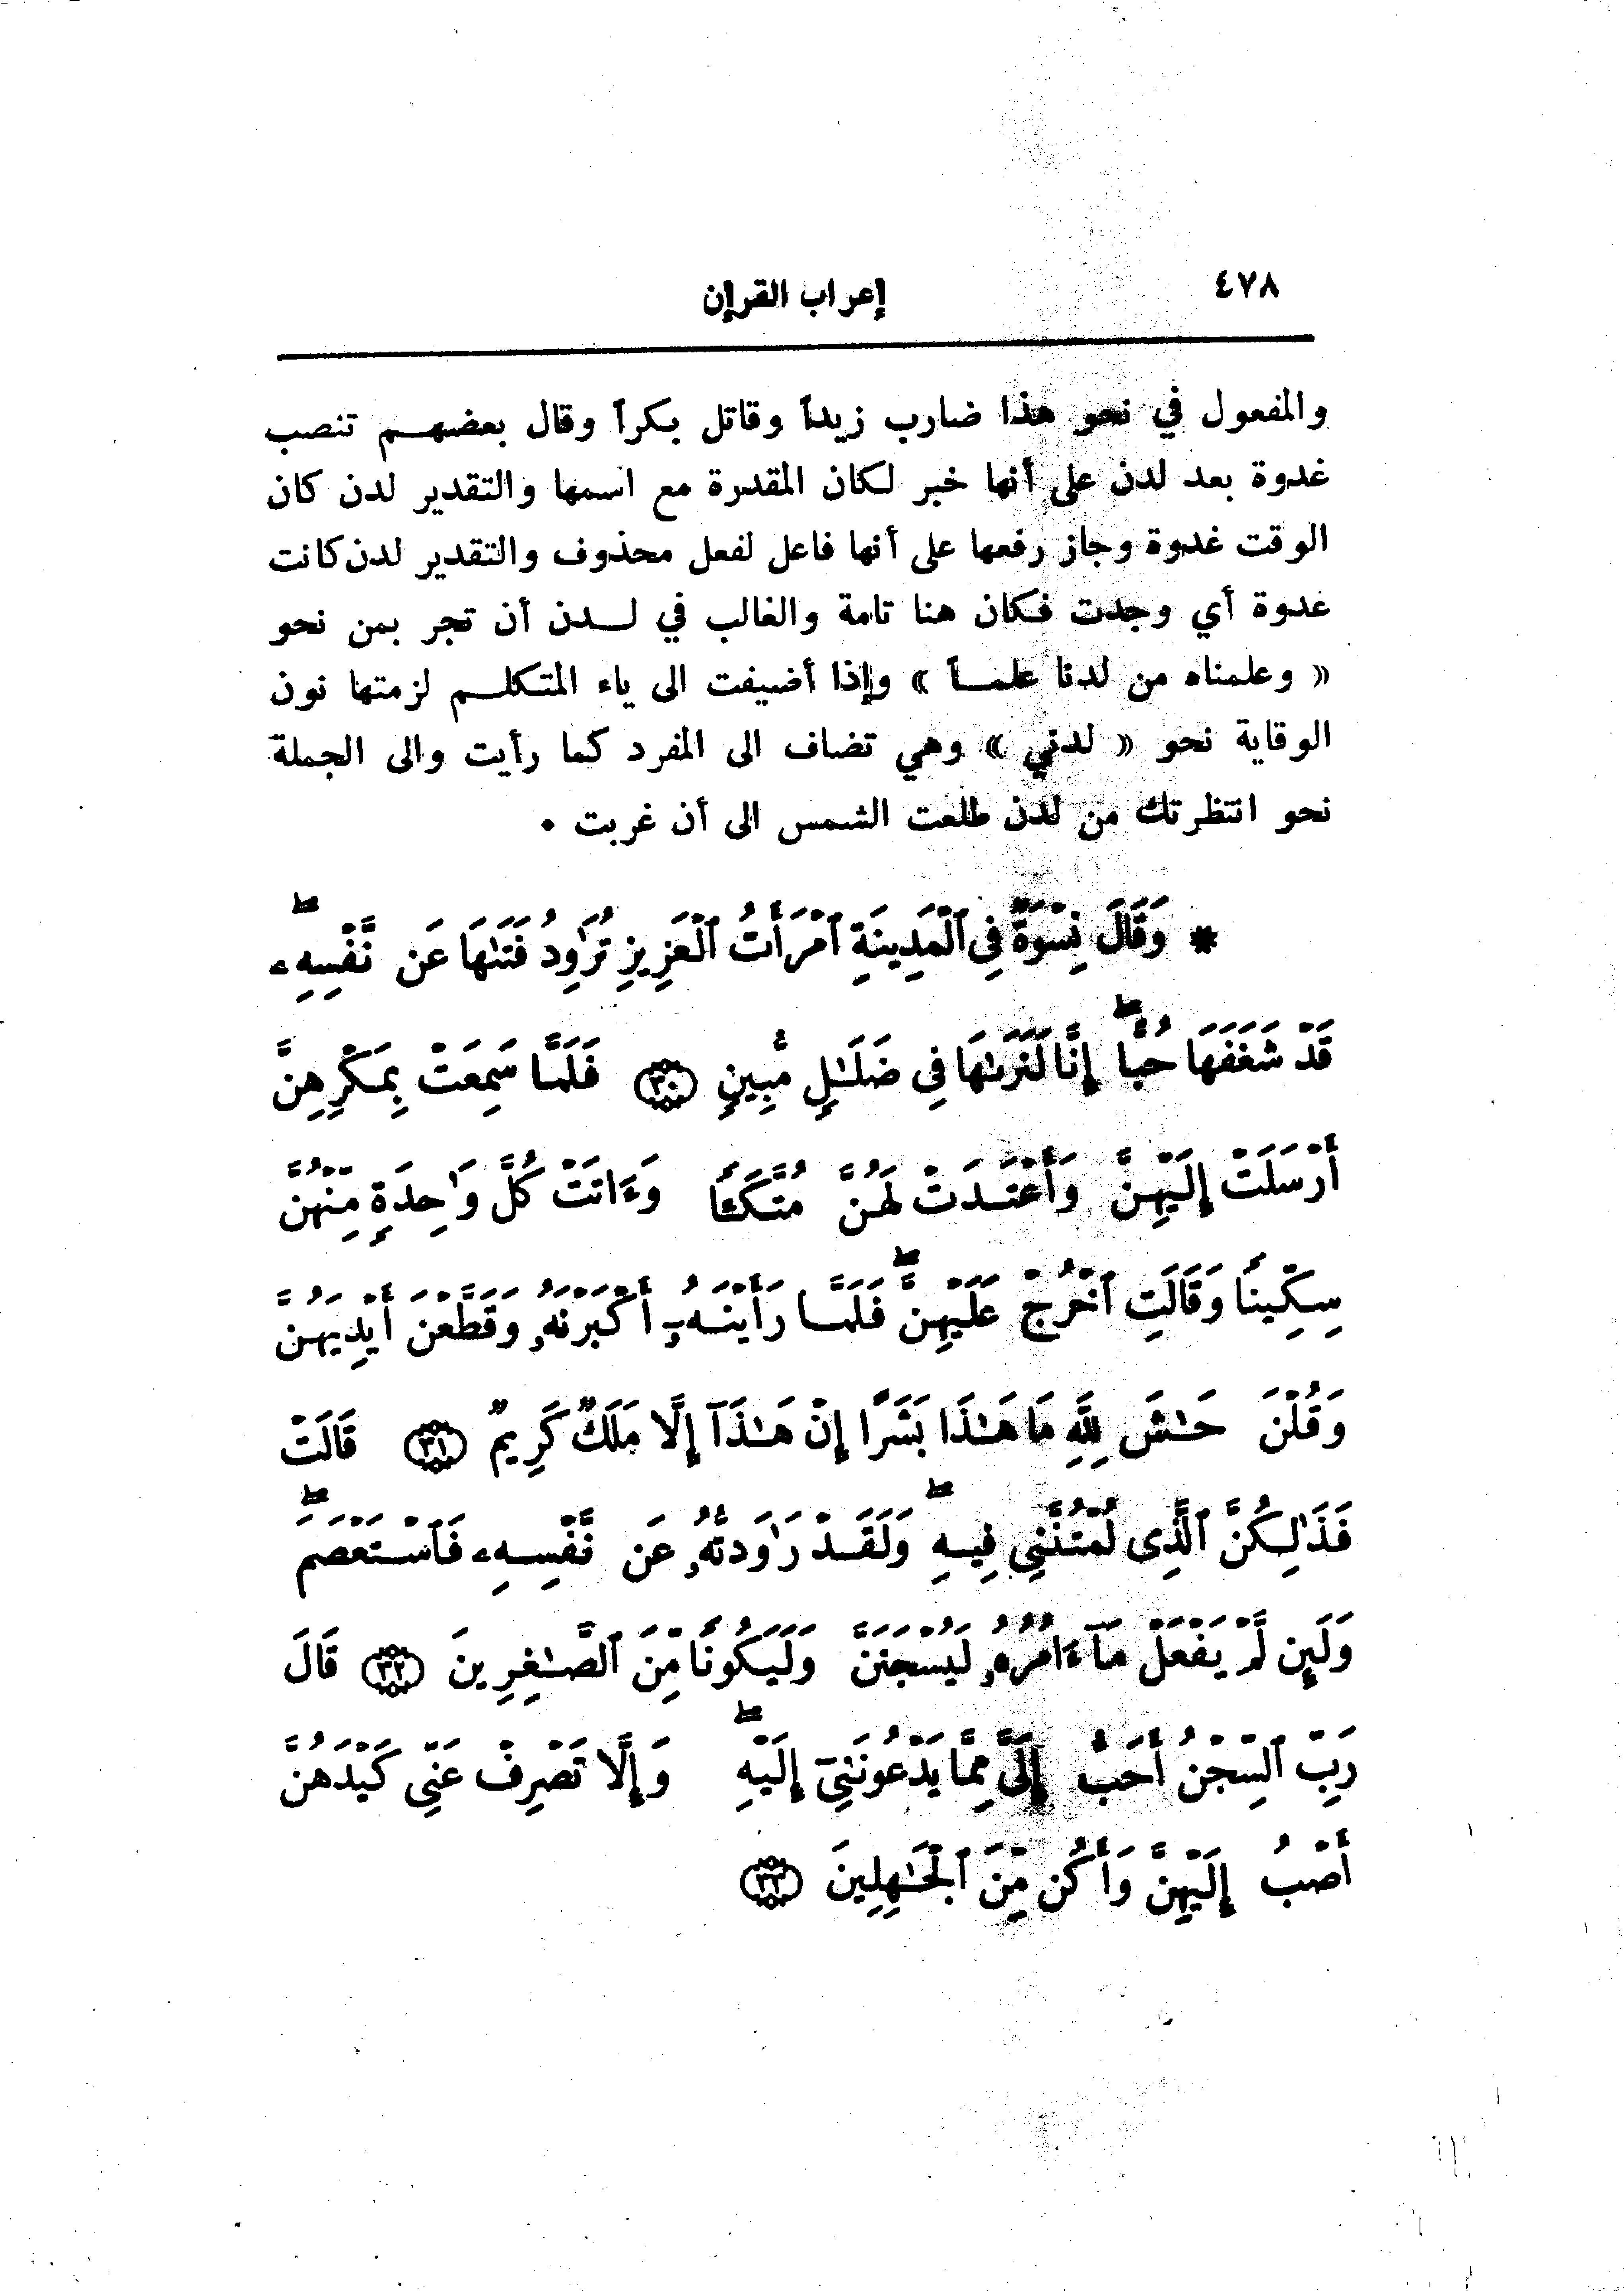 ٤٧٨
إعراب القرإن
والمفعول في نحو هذا ضارب زيداً وقاتل بكراً وقال بعضهم تنصب
غدوة بعد لدن على أنها خبر لكان المقدرة مع اسمها والتقدير لدن كان
الوقت غدوة وجاز رفعها على أنها فاعل لفعل محذوف والتقدير لدن كانت
عدوة أي وجدت فكان هنا تامة والغالب في لدن أن تجر بمن نحو
« وعلمناه من لدنا علماً » وإذا أضيفت الى ياء المتكلم لزمتها نون
الوقاية نحو « لدني » وهي تضاف الى المفرد كما رأيت والى الجملة
نحو انتظرتك من لدن طلعت الشمس الى أن غربت ٠
* وَقَالَ نِسْوَةٌ فِى ٱلْمَدِينَةِ ٱمْرَأَتُ ٱلْعَزِيزِ تُرَٰوِدُ فَتَىٰهَا عَن نَّفْسِهِۦ ۖ
قَدْ شَغَفَهَا حُبًّا ۖ إِنَّا لَنَرَىٰهَا فِى ضَلَـٰلٍ مُّبِينٍ ٣٠ فَلَمَّا سَمِعَتْ بِمَكْرِهِنَّ
أَرْسَلَتْ إِلَيْهِنَّ وَأَعْتَدَتْ لَهُنَّ مُتَّكَـًٔا وَءَاتَتْ كُلَّ وَٰحِدَةٍ مِّنْهُنَّ
سِكِّينًا وَقَالَتِ ٱخْرُجْ عَلَيْهِنَّ ۖ فَلَمَّا رَأَيْنَهُۥٓ أَكْبَرْنَهُۥ وَقَطَّعْنَ أَيْدِيَهُنَّ
وَقُلْنَ حَـٰشَ لِلَّهِ مَا هَـٰذَا بَشَرًا إِنْ هَـٰذَآ إِلَّا مَلَكٌ كَرِيمٌ ٣١ قَالَتْ
فَذَٰلِكُنَّ ٱلَّذِى لُمْتُنَّنِى فِيهِ ۖ وَلَقَدْ رَٰوَدتُّهُۥ عَن نَّفْسِهِۦ فَٱسْتَعْصَمَ ۖ
وَلَئِن لَّمْ يَفْعَلْ مَآ ءَامُرُهُۥ لَيُسْجَنَنَّ وَلَيَكُونًا مِّنَ ٱلصَّـٰغِرِينَ ٣٢ قَالَ
رَبِّ ٱلسِّجْنُ أَحَبُّ إِلَىَّ مِمَّا يَدْعُونَنِىٓ إِلَيْهِ ۖ وَإِلَّا تَصْرِفْ عَنِّى كَيْدَهُنَّ
أَصْبُ إِلَيْهِنَّ وَأَكُن مِّنَ ٱلْجَـٰهِلِينَ ٣٣